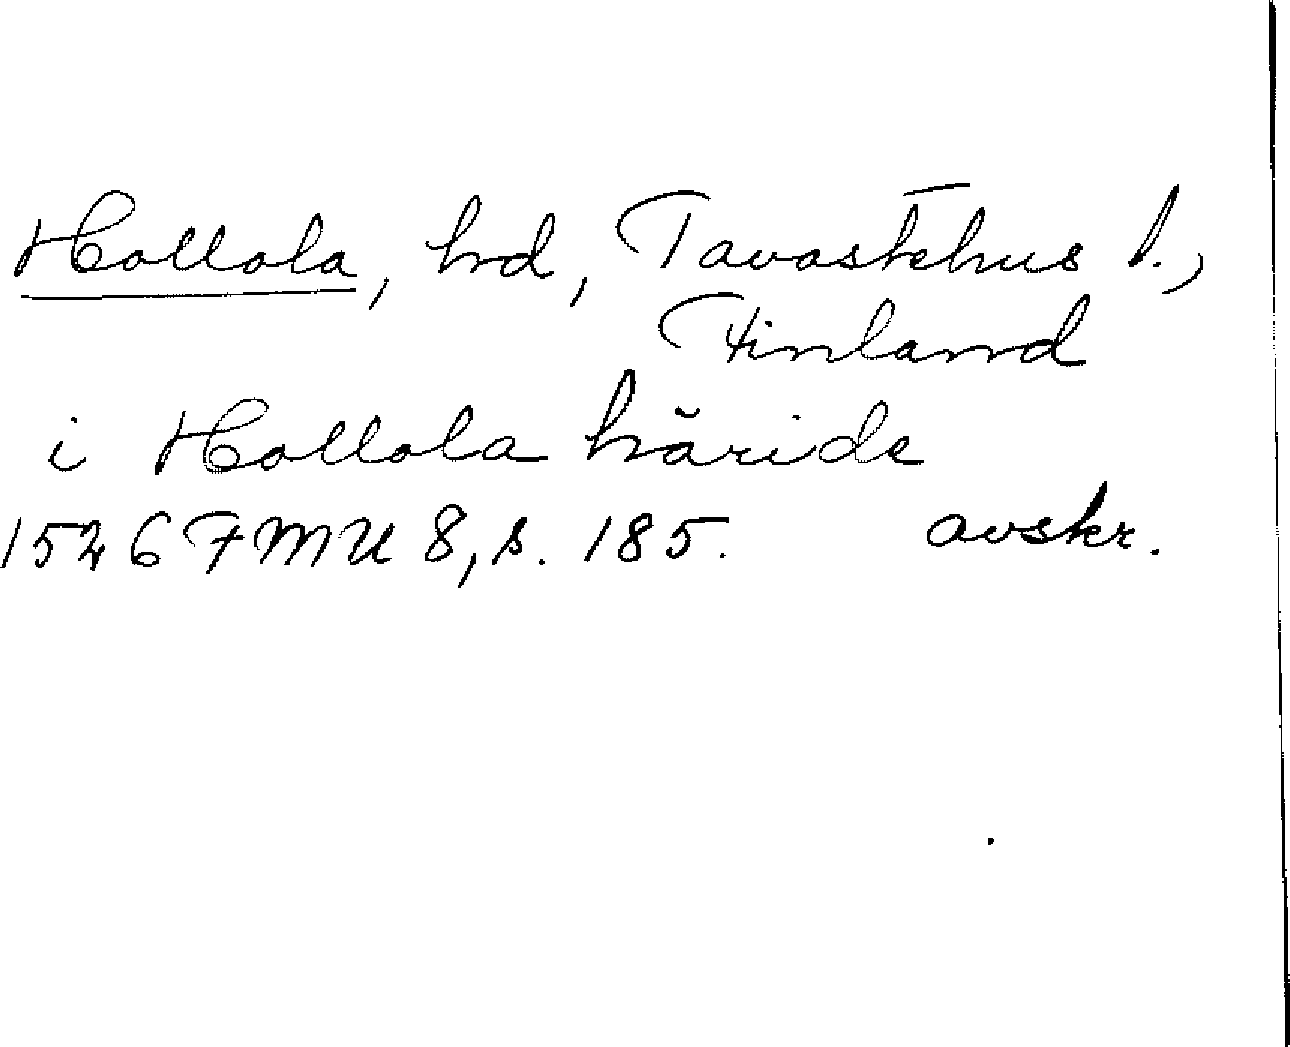 Hollola, hd, Tavastehus l.,
Finland
i Hollola häride
1526 FMU 8, s. 185. avskr.